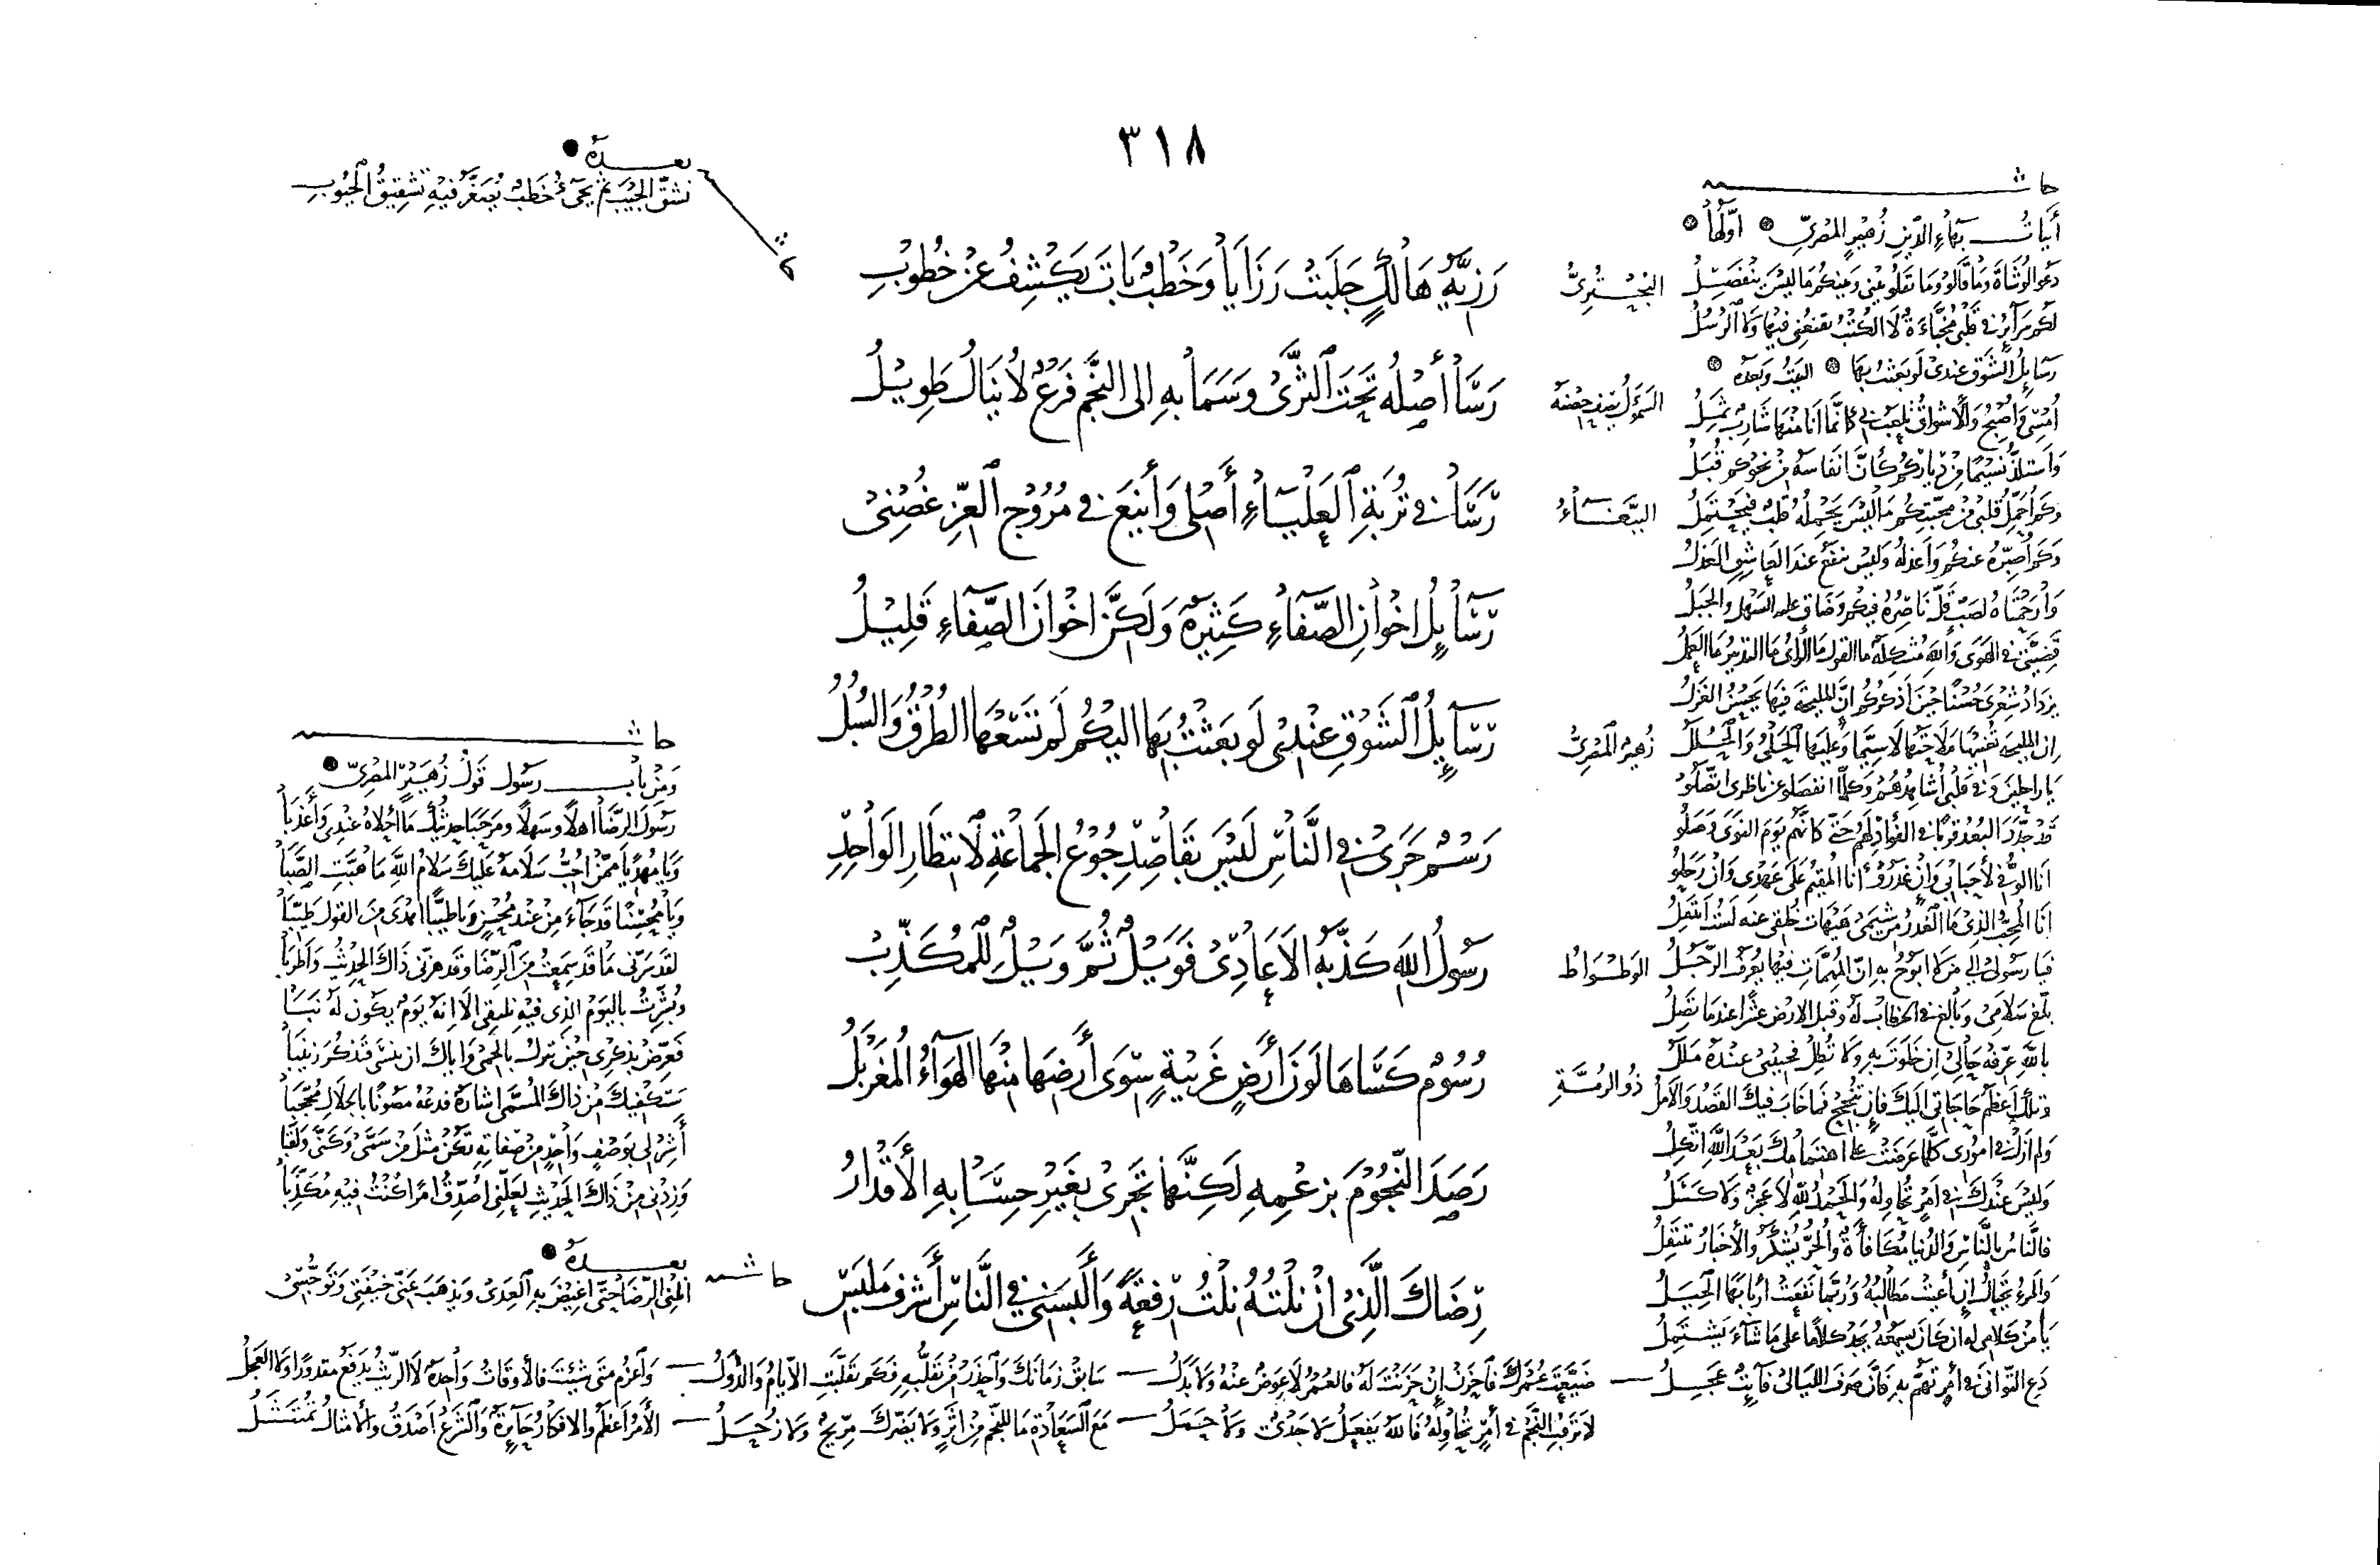 ٣١٨
رَزِيَّةُ هَالِكٍ جَلَبَتْ رَزَايَا وَخَطْبٌ بَاتَ يَكْشِفُ عَنْ خُطُوبِ
رَسَا أَصْلُهُ تَحْتَ الثَّرَى وَسَمَا بِهِ إلى النَّجْمِ فَرْعٌ لَا يُنَالُ طَوِيلُ
رَسَا فِي تُرْبَةِ الْعَلْيَاءِ أَصْلِي وَأَيْنَعَ فِي مُرُوجِ الْعِزِّ غُصْنِي
رَسَائِلُ إخْوَانِ الصَّفَاءِ كَثِيرَةٌ وَلَكِنَّ إخْوَانَ الصَّفَاءِ قَلِيلُ
رَسَائِلُ الشَّوْقِ عِنْدِي لَوْ بَعَثْتُ بِهَا إليْكُمُ لَمْ تَسَعْهَا الطُّرْقُ وَالسُّبُلُ
رَسْمٌ جَرَى فِي النَّاسِ لَيْسَ بِقَاصِدٍ جُوْعُ الْجَمَاعَةِ لِانْتِظَارِ الْوَاحِدِ
رَسُولُ اللَّهِ كَذَّبَهُ الْأَعَادِي فَوَيْلٌ ثُمَّ وَيْلٌ لِلْمُكَذِّبِ
رُسُومٌ كَسَاهَا لَوْنَ أَرْضٍ غَرِيبَةٍ سِوَى أَرْضِهَا مِنْهَا الْهَوَاءُ الْمُغَرْبَلُ
رَصَدَ النُّجُومَ بِزَعْمِهِ لَكِنَّهَا تَجْرِي بِغَيْرِ حِسَابِهِ الْأَقْدَارُ
رِضَاكَ الَّذِي إنْ نِلْتُهُ نِلْتُ رِفْعَةً وَأَلْبَسَنِي فِي النَّاسِ أَشْرَفَ مَلْبَسِ
البُحْتُرِيُّ
السموأل
البَبَّغَاءُ
زُهَيْرُ المِصْرِيُّ
الوَطْوَاطُ
ذُو الرُّمَّةِ
حاشـ
أبيات بهاء الدين زهير المصري أولها
دعوا الوشاة وما قالوا وما نقلوا بيني وبينكم ما ليس ينفصل
لكم سرائر في قلبي مخبأة لا الكتب تقنعني فيها ولا الرسل
رسائل الشوق عندي لو بعثت بها البيت وبعده
أمسي وأصبح والأشواق تلعب بي كأنما أنا منها شارب ثمل
وأستلذ نسيما من دياركم كأن أنفاسه من نحوكم قبل
وكم أحمل قلبي من محبتكم ما ليس يحمله قلب فيحتمل
وكم أصبره عنكم وأعذله وليس ينفع عند العاشق العذل
وارحمتاه لصب قل ناصره فيكم وضاق عليه السهل والجبل
قضيتي في الهوى والله مشكلة ما القول ما الرأي ما التدبير ما العمل
يزداد شعري حسنا حين أذكركم إن المليحة فيها يحسن الغزل
إن المليحة تغنيها ملاحتها لا سيما وعليها الحلي والحلل
يا راحلين وفي قلبي أشاهدهم وكلما انفصلوا عن ناظري اتصلوا
قد جدد البعد قربا في الفؤاد لهم حتى كأنهم يوم النوى وصلوا
أنا الوفي لأحبابي وإن غدروا أنا المقيم على عهدي وإن رحلوا
أنا المحب الذي ما الغدر من شيمي هيهات خلقي عنه لست أنتقل
فيا رسولي إلى من لا أبوح به إن المهمات فيها يعرف الرجل
بلغ سلامي وبالغ في الخطاب له وقبل الأرض عشرا عندما تصل
بالله عرفه حالي إن خلوت به ولا تطل فحبيبي عنده ملل
وتلك أعظم حاجاتي إليك فإن تنجح فما خاب فيك القصد والأمل
ولم أزل في أموري كلما عرضت على اهتمامك بعد الله أتكل
وليس عندك في أمر تحاوله والحمد لله لا عجز ولا كسل
فالناس بالناس والدنيا مكافأة والخير يشكر والأخبار تنتقل
والمرء يحتال إن أعيت مطالبه وربما نفعت أربابها الحيل
يا من كلامي له إن كان يسمعه يجد كلاما على ما شاء يشتمل
دع التواني في أمر تهم به فإن صرف الليالي فائت عجل — ضيعت عمرك فاحزن إن حزنت له فالعمر لا عوض عنه ولا بدل — سابق زمانك واحذر من تقلبه فكم تقلبت الأيام والدول — واعزم متى شئت فالأوقات واحدة لا الريث يدفع مقدورا ولا العجل
لا ترقب النجم في أمر تحاوله فالله يفعل لا جدي ولا حمل — مع السعادة ما للنجم من أثر ولا يضرك مريخ ولا زحل — الأمر أعظم والأفكار حائرة والشرع أصدق والأمثال تمتثل
بعده
نشق الجيب ثم يجيء خطب يصغر فيه تشقيق الجيوب
حاشـ
ومن باب رسول قول زهير المصري
رسول الرضا أهلا وسهلا ومرحبا حديثك ما أحلاه عندي وأعذبا
ويا مهديا ممن أحب سلامه عليك سلام الله ما هبت الصبا
ويا محسنا قد جاء من عند محسن ويا طيبا أهدى من القول طيبا
لقد سرني ما قد سمعت من الرضا وقد هزني ذاك الحديث وأطربا
وبشرت باليوم الذي فيه نلتقي ألا إنه يوم يكون له نبا
فعرض بذكري حين تترك بالحمى وإياك أن تنسى فتذكر زينبا
ستكفيك من ذاك المسمى إشارة فدعه مصونا بالجلال محجبا
أشر لي بوصف واحد من صفاته تكن مثل من سمى وكنى ولقبا
وزدني من ذاك الحديث لعلني أصدق أمرا كنت فيه مكذبا
بعده
حاشـ
أنلني الرضا حتى أغيض به العدى ويذهب عني خيفتي وتوحشي